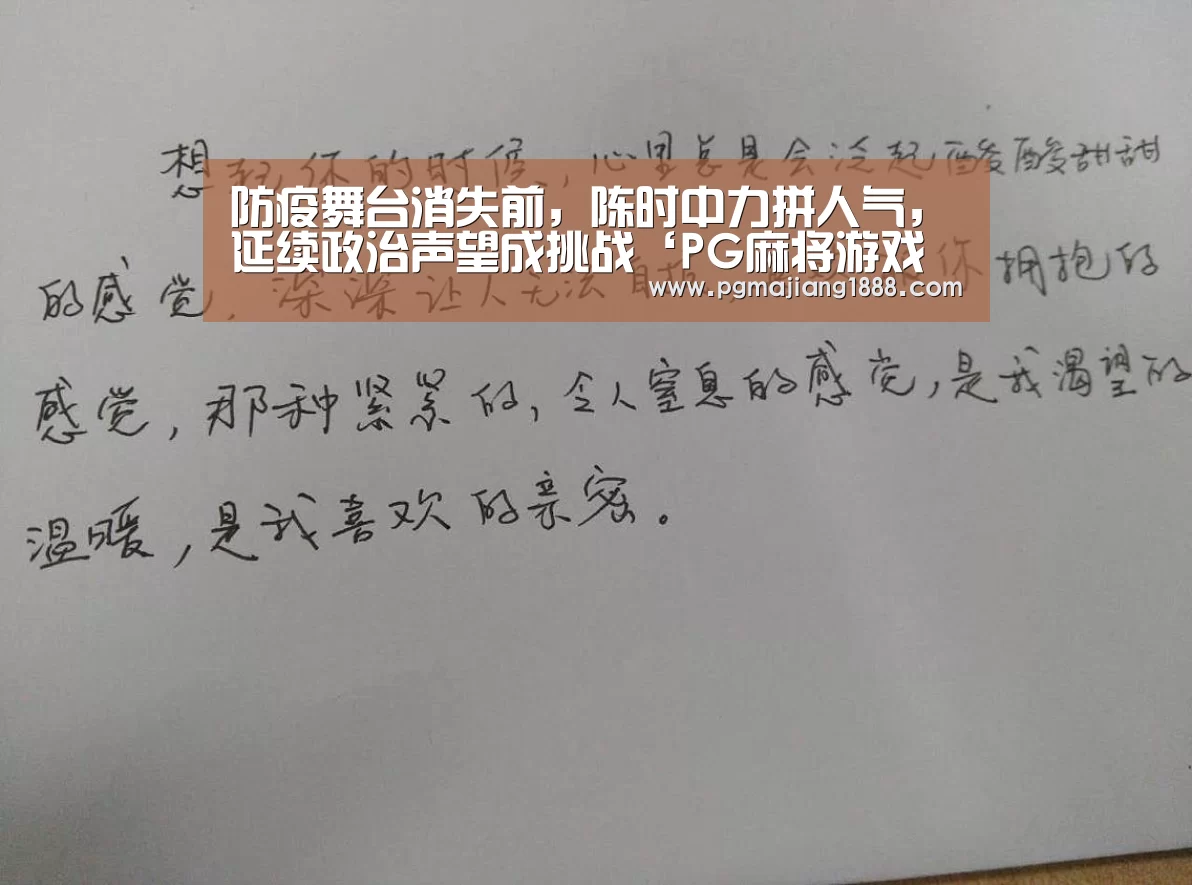 想起你的时候，心里总是会泛起酸酸甜甜
防疫舞台消失前，陈时中力拼人气，
延续政治声望成挑战‘PG麻将游戏
www.pgmajiang1888.com
的感觉，深深让人无法自拔，你拥抱的
感觉，那种紧紧的，令人窒息的感觉，是我渴望的
温暖，是我喜欢的亲密。